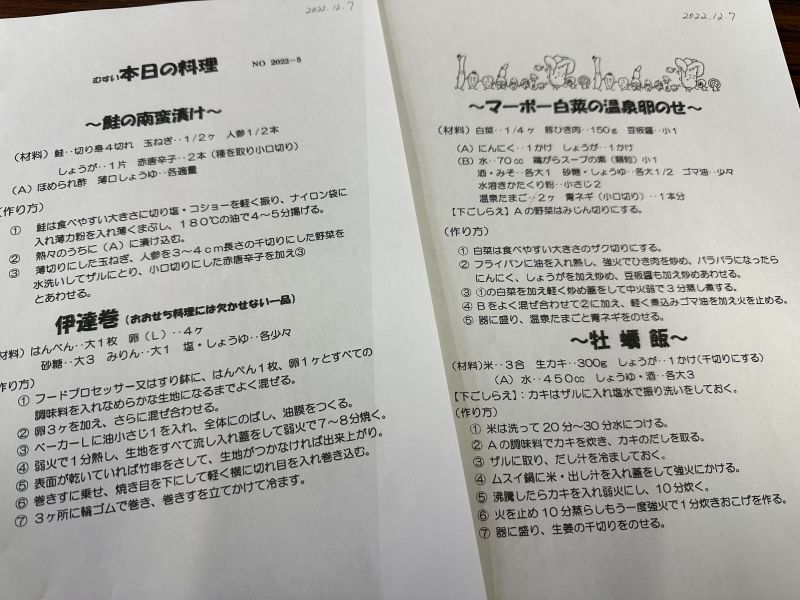 2022.12.7
むすい 本日の料理 NO 2022-5
～鮭の南蛮漬け～
(材料) 鮭‥切り身4切れ 玉ねぎ‥1/2ヶ 人参1/2本
しょうが‥1片 赤唐辛子‥2本(種を取り小口切り)
(A) ほめられ酢 薄口しょうゆ‥各適量
(作り方)
① 鮭は食べやすい大きさに切り塩・コショーを軽く振り、ナイロン袋に
入れ薄力粉を入れ薄くまぶし、180℃の油で4～5分揚げる。
② 熱々のうちに(A)に漬け込む。
③ 薄切りにした玉ねぎ、人参を3～4cm長さの千切りにした野菜を
水洗いしてザルにとり、小口切りにした赤唐辛子を加え③
とあわせる。
伊達巻(おおせち料理には欠かせない一品)
材料) はんぺん‥大1枚 卵(L)‥4ヶ
砂糖‥大3 みりん‥大1 塩・しょうゆ‥各少々
作り方)
① フードプロセッサー又はすり鉢に、はんぺん1枚、卵1ヶとすべての
調味料を入れなめらかな生地になるまでよく混ぜる。
② 卵3ヶを加え、さらに混ぜ合わせる。
③ ベーカーLに油小さじ1を入れ、全体にのばし、油膜をつくる。
④ 弱火で1分熱し、生地をすべて流し入れ蓋をして弱火で7～8分焼く。
⑤ 表面が乾いていれば竹串をさして、生地がつかなければ出来上がり。
⑥ 巻きすに乗せ、焼き目を下にして軽く横に切れ目を入れ巻き込む。
⑦ 3ヶ所に輪ゴムで巻き、巻きすを立てかけて冷ます。
2022.12.7
～マーボー白菜の温泉卵のせ～
(材料) 白菜‥1/4ヶ 豚ひき肉‥150g 豆板醤‥小1
(A) にんにく‥1かけ しょうが‥1かけ
(B) 水‥70cc 鶏がらスープの素(顆粒)小1
酒・みそ‥各大1 砂糖・しょうゆ‥各大1/2 ゴマ油‥少々
水溶きかたくり粉‥小さじ2
温泉たまご‥2ヶ 青ネギ(小口切り)‥1本分
【下ごしらえ】Aの野菜はみじん切りにする。
(作り方)
① 白菜は食べやすい大きさのザク切りにする。
② フライパンに油を入れ熱し、強火でひき肉を炒め、パラパラになったら
にんにく、しょうがを加え炒め、豆板醤も加え炒めあわせる。
③ ①の白菜を加え軽く炒め蓋をして中火弱で3分蒸し煮する。
④ Bをよく混ぜ合わせて②に加え、軽く煮込みゴマ油を加え火を止める。
⑤ 器に盛り、温泉たまごと青ネギをのせる。
～牡蠣飯～
(材料)米‥3合 生カキ‥300g しょうが‥1かけ(千切りにする)
(A) 水‥450cc しょうゆ・酒‥各大3
【下ごしらえ】: カキはザルに入れ塩水で振り洗いをしておく。
(作り方)
① 米は洗って20分～30分水につける。
② Aの調味料でカキを炊き、カキのだしを取る。
③ ザルに取り、だし汁を冷ましておく。
④ ムスイ鍋に米・出し汁を入れ蓋をして強火にかける。
⑤ 沸騰したらカキを入れ弱火にし、10分炊く。
⑥ 火を止め10分蒸らしもう一度強火で1分炊きおこげを作る。
⑦ 器に盛り、生姜の千切りをのせる。